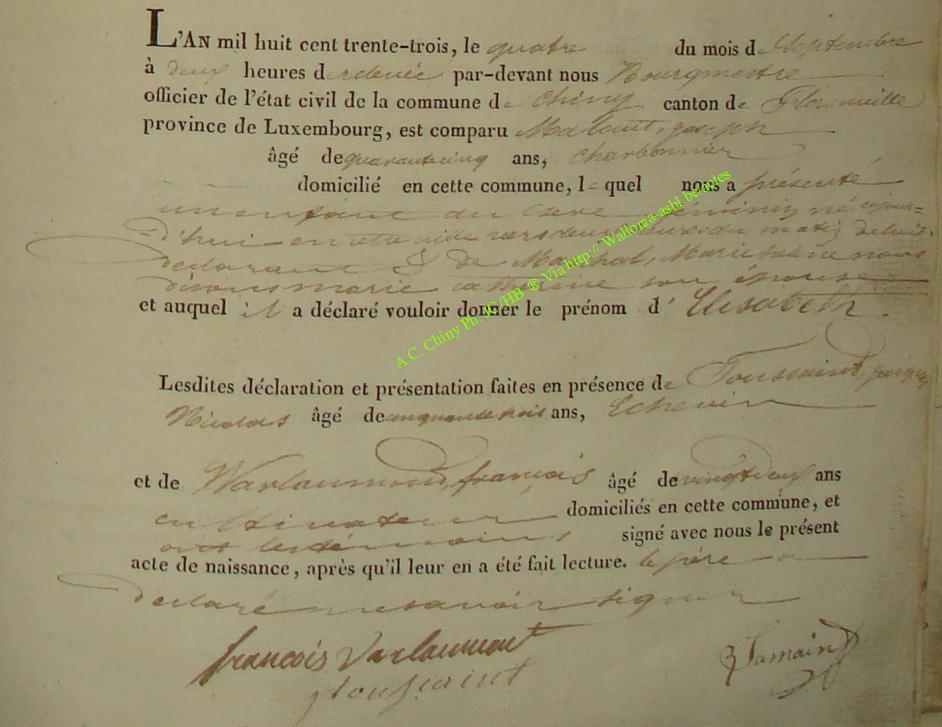 L'AN mil huit cent trente-trois, le quatre du mois de Septembre
à deux heures de relevée par-devant nous Bourgmestre
officier de l'état civil de la commune de Chiny canton de Florenville
province de Luxembourg, est comparu Malout, joseph
âgé de quarante cinq ans, charbonnier
domicilié en cette commune, le quel nous a présenté
un enfant du sexe féminin né aujour=
d'hui en cette ville vers deux heures du matin de lui
déclarant & de Marchal, Marie hélène nous
disons marie catherine son épouse
et auquel il a déclaré vouloir donner le prénom d' Elisabeth.
Lesdites déclaration et présentation faites en présence de Toussaint, jacques
Nicolas âgé de cinquante trois ans, Echevin
et de Warlaumond, françois âgé de vingt deux ans
cultivateur domiciliés en cette commune, et
ont les témoins signé avec nous le présent
acte de naissance, après qu'il leur en a été fait lecture. le père a
déclaré ne savoir signer
françois Varlaumont
Toussaint
Jamain
A.C. Chiny Ph. JC/HB ® Via http:// Wallonia-asbl.be/notes